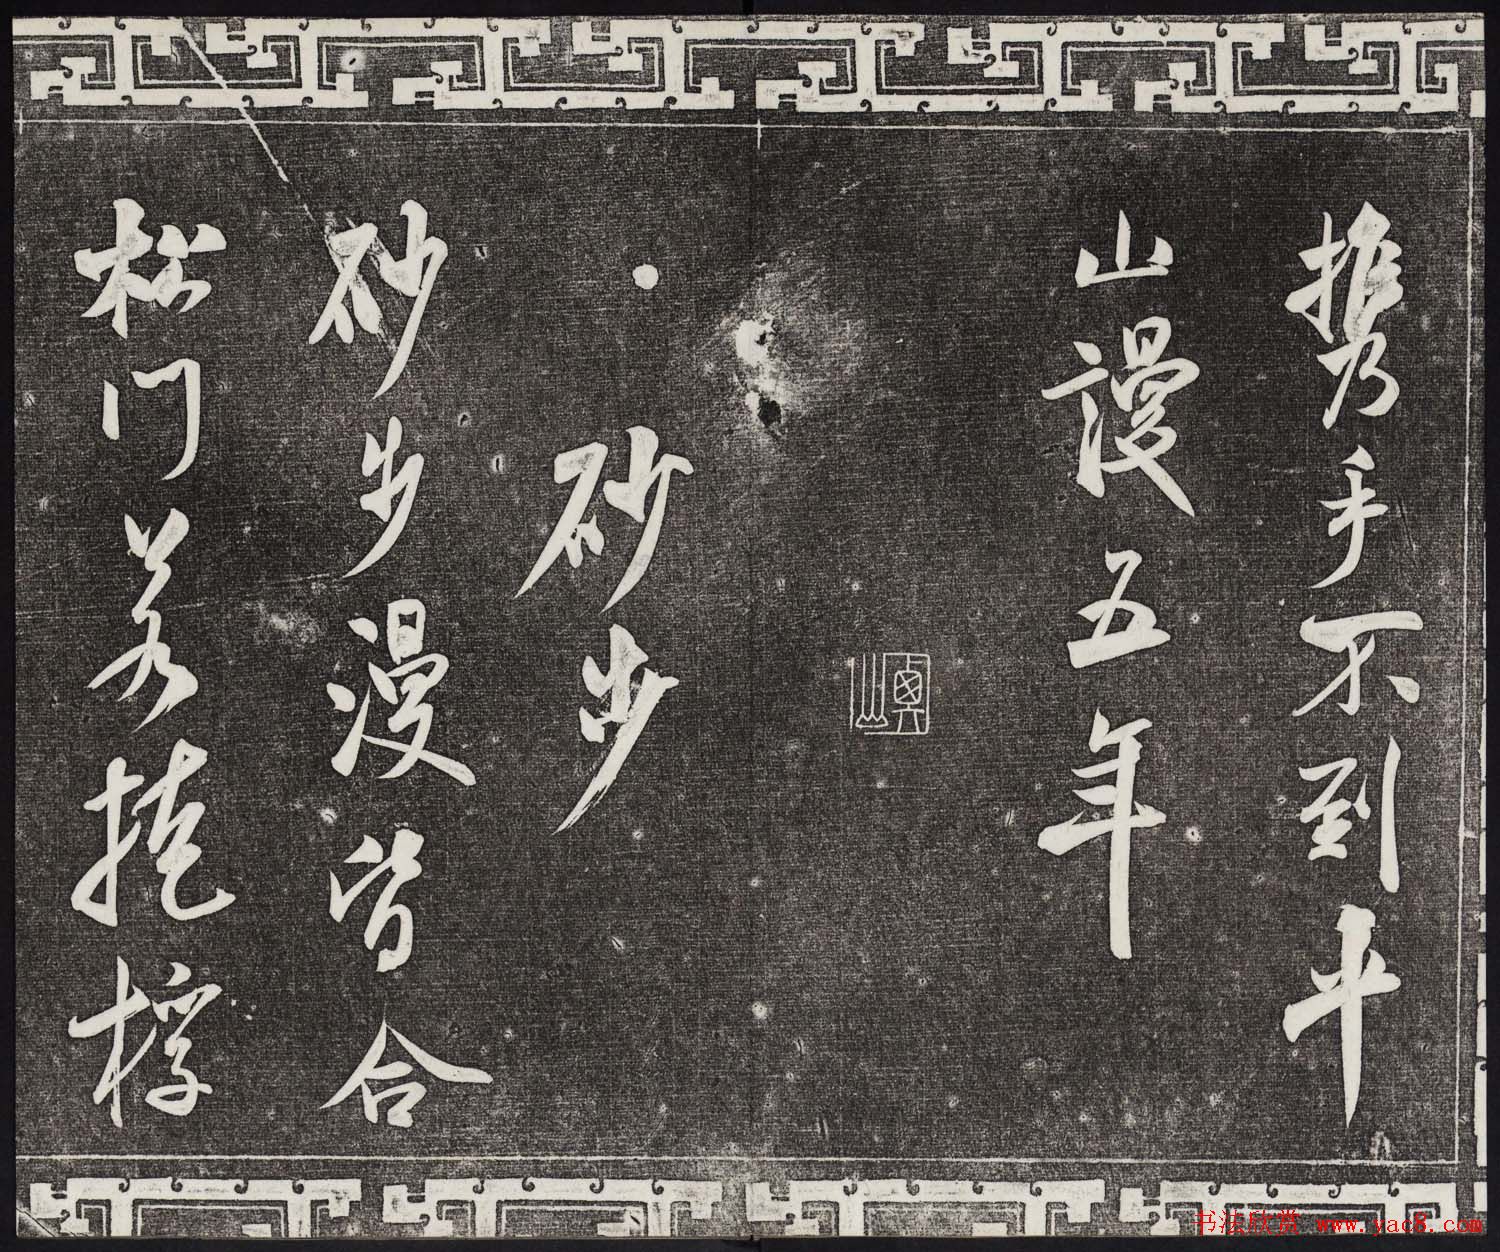 携手不到平
山謾五年
砂步
砂步漫皆合
松門若掩桴
书法欣赏 www.yac8.com